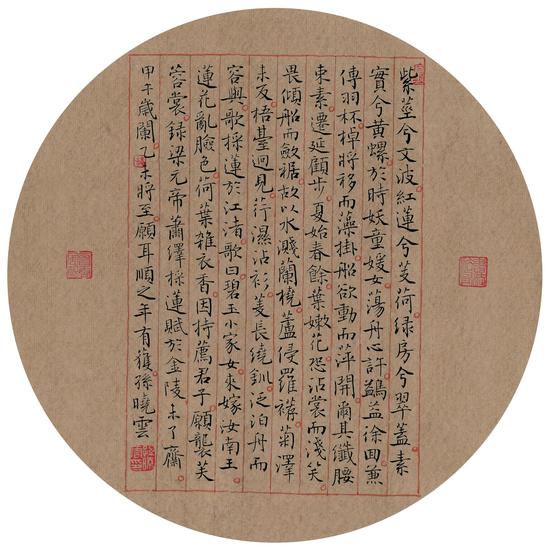 紫莖兮文波紅蓮兮芰荷緑房兮翠蓋素
實兮黄螺於時妖童媛女蕩舟心許鷁益徐回兼
傳羽杯棹將移而藻掛船欲動而萍開爾其纖腰
束素遷延顧步夏始春餘葉嫩花恐沾裳而淺笑
畏傾船而斂裾故以水濺蘭橈蘆侵羅菊澤
未反梧臺迥見荇濕沾衫菱長繞釧泛泊舟而
容與歌採蓮於江渚歌曰碧玉小家女來嫁汝南王
蓮花亂臉色荷葉雜衣香因持薦君子願襲芙
蓉裳録梁元帝蕭繹採蓮賦於金陵未了齋
甲午歲闌乙未將至願耳順之年有獲孫曉雲